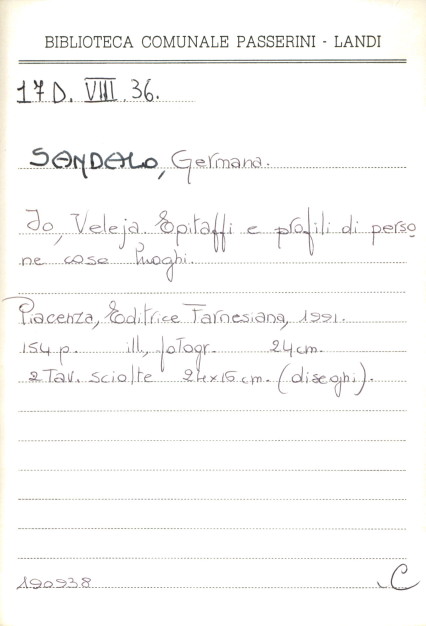 BIBLIOTECA COMUNALE PASSERINI - LANDI
17 D. VIII. 36.
SANDALO, Germana.
Io, Veleja. Epitaffi e profili di perso
ne cose luoghi.
Piacenza, Editrice Farnesiana, 1991.
154 p. ill., fotogr. 24 cm.
2 Tav. sciolte 24x16 cm. (disegni).
190938
C